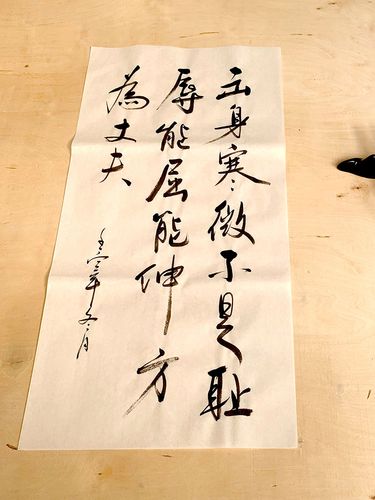 出身寒微不是耻
辱能屈能伸方
為丈夫
壬寅年冬月